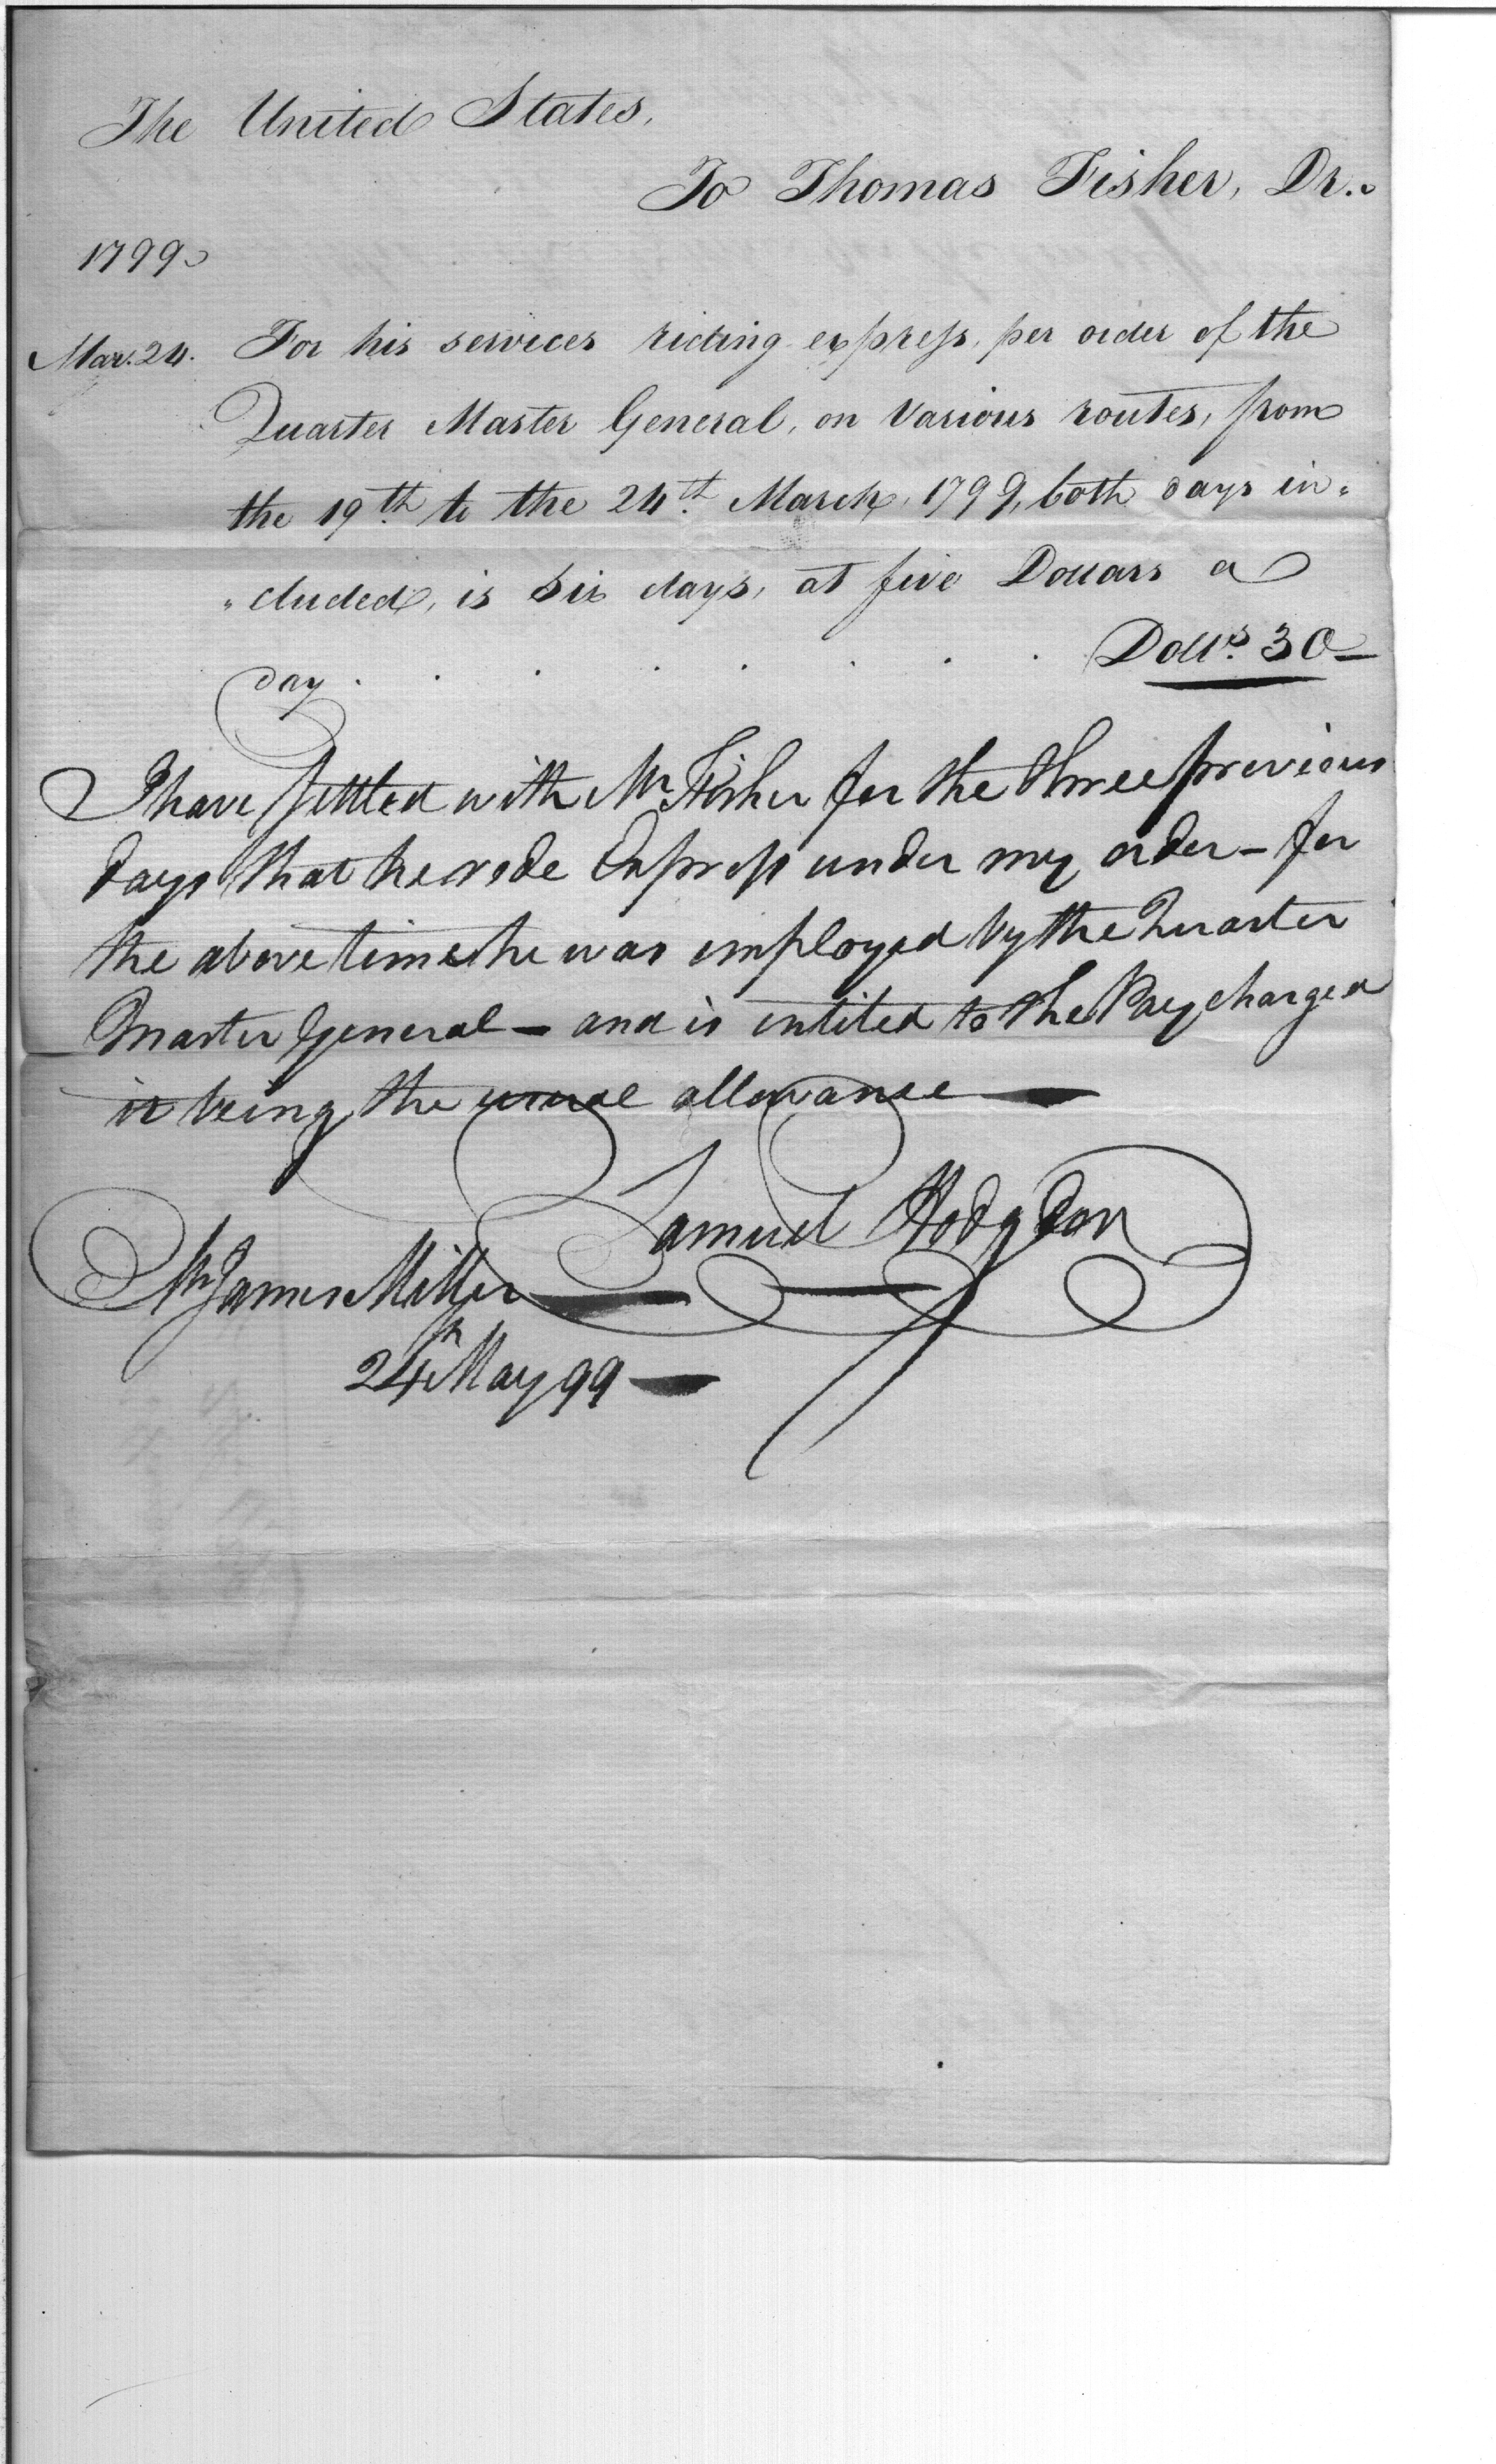 The United States,
To Thomas Fisher, Dr.
1799.
Mar. 24. For his services riding express, per order of the
Quarter Master General, on various routes, from
the 19th to the 24th March, 1799, both days in-
"cluded, is six days, at five Dollars a
day . . . . . . . . Dolls. 30—
I have settled with Mr Fisher for the three previous
days that he rode Express under my order – for
the above time he was employed by the Quarter
Master General – and is intitled to the Pay charged
it being the usual allowance —
Samuel Hodgdon
Mr James Miller —
24th May 99 —